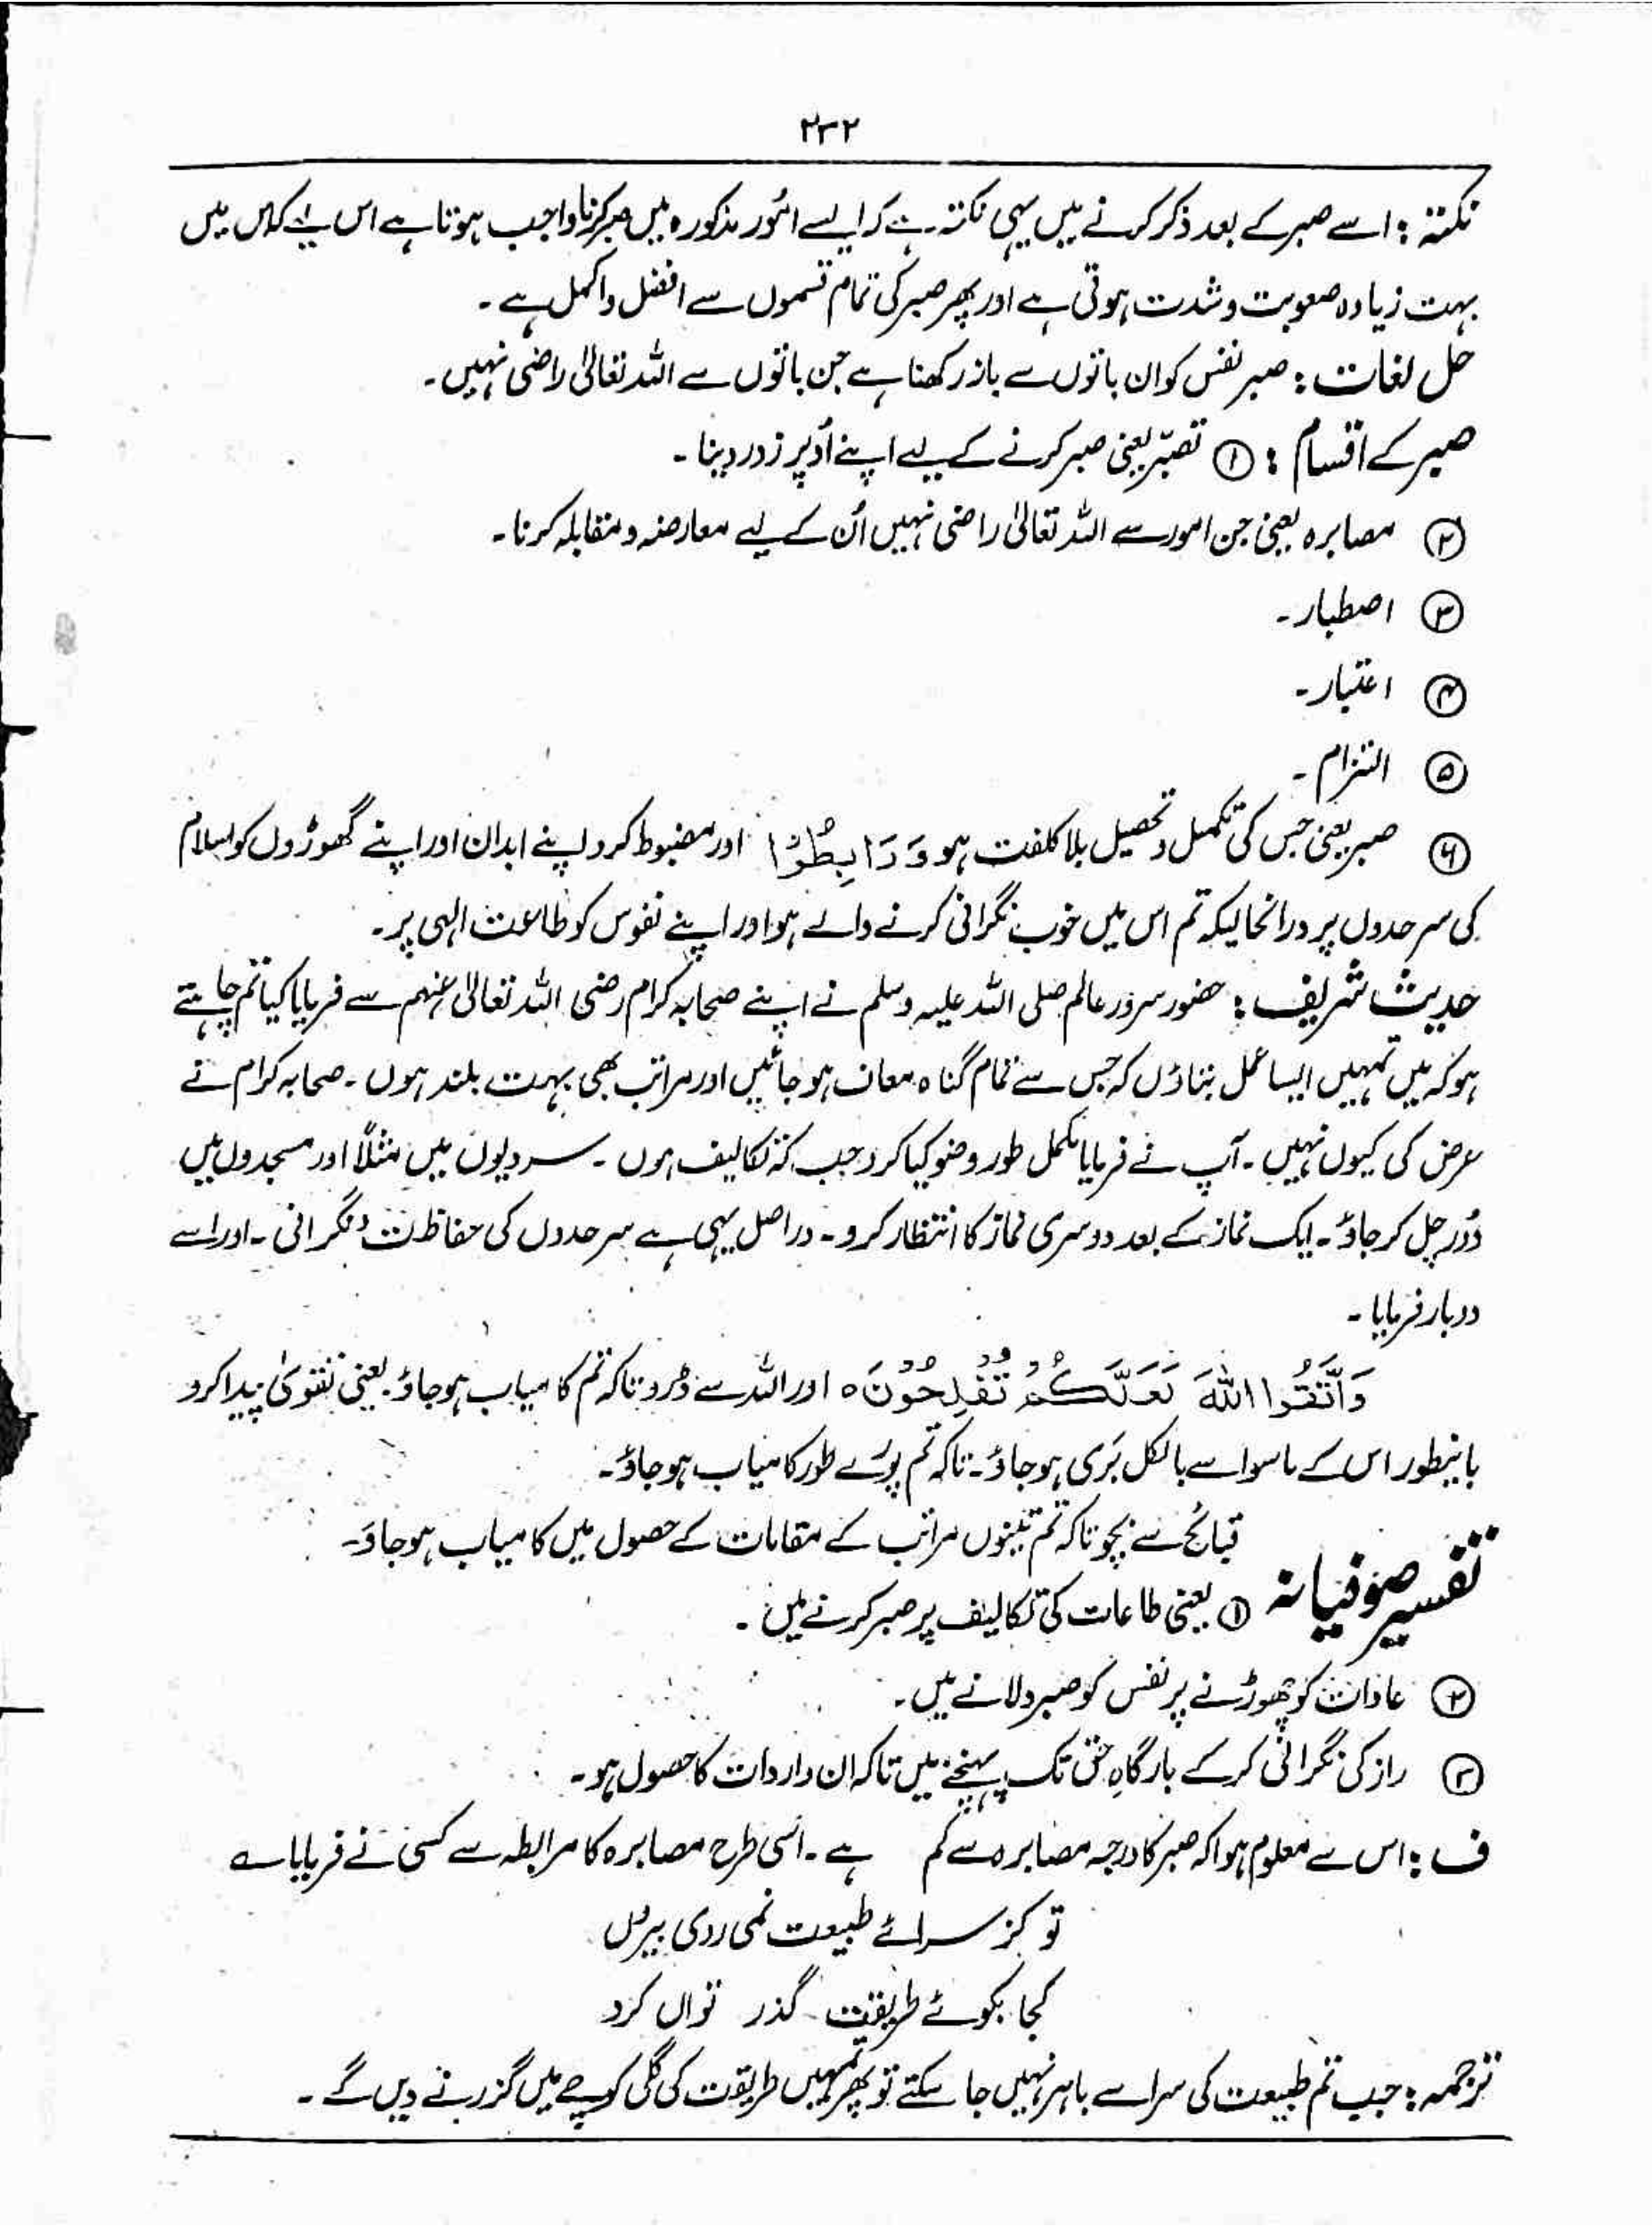 ۲۳۲
نکتہ : اسے صبر کے بعد ذکر کرنے میں یہی نکتہ ہے کہ ایسے امُور مذکورہ میں صبر کرنا واجب ہوتا ہے اس لیے کہ اس میں
بہت زیادہ صعوبت و شدت ہوتی ہے اور پھر صبر کی تمام قسموں سے افضل و اکمل ہے ۔
حل لغات : صبر نفس کو ان باتوں سے باز رکھنا ہے جن باتوں سے اللہ تعالیٰ راضی نہیں ۔
صبر کے اقسام : ① تصبّر یعنی صبر کرنے کے لیے اپنے اُوپر زور دینا ۔
② مصابرہ یعنی جن امور سے اللہ تعالیٰ راضی نہیں اُن کے لیے معارضہ و مقابلہ کرنا ۔
③ اصطبار ۔
④ اعتبار ۔
⑤ التزام ۔
⑥ صبر یعنی جس کی تکمیل و تحصیل بلا کلفت ہو وَ رَابِطُوْا اور مضبوط کرو اپنے ابدان اور اپنے گھوڑوں کو اسلام
کی سرحدوں پر درانحالیکہ تم اس میں خوب نگرانی کرنے والے ہو اور اپنے نفوس کو طاعت الٰہی پر ۔
حدیث شریف : حضور سرور عالم صلی اللہ علیہ وسلم نے اپنے صحابہ کرام رضی اللہ تعالیٰ عنہم سے فرمایا کیا تم چاہتے
ہو کہ میں تمہیں ایسا عمل بتاؤں کہ جس سے تمام گناہ معاف ہو جائیں اور مراتب بھی بہت بلند ہوں ۔ صحابہ کرام نے
عرض کی کیوں نہیں ۔ آپ نے فرمایا مکمل طور وضو کیا کرو جب کہ تکالیف ہوں ۔ سردیوں میں مثلاً اور مسجدوں میں
دُور چل کر جاؤ ۔ ایک نماز کے بعد دوسری نماز کا انتظار کرو ۔ در اصل یہی ہے سرحدوں کی حفاظت و نگرانی ۔ اور اسے
دوبار فرمایا ۔
وَاتَّقُوا اللّٰهَ لَعَلَّكُمْ تُفْلِحُوْنَ ○ اور اللہ سے ڈرو تاکہ تم کامیاب ہو جاؤ ۔ یعنی تقویٰ پیدا کرو
بایںطور اس کے ماسوا سے بالکل بَری ہو جاؤ ۔ تاکہ تم پورے طور کامیاب ہو جاؤ ۔
قبائح سے بچو تاکہ تم تینوں مراتب کے مقامات کے حصول میں کامیاب ہو جاؤ ۔
تفسیر صوفیانہ ① یعنی طاعات کی تکالیف پر صبر کرنے میں ۔
② عادات کو چھوڑنے پر نفس کو صبر دلانے میں ۔
③ راز کی نگرانی کر کے بارگاہِ حق تک پہنچنے میں تاکہ ان واردات کا حصول ہو ۔
ف : اس سے معلوم ہوا کہ صبر کا درجہ مصابرہ سے کم ہے ۔ اسی طرح مصابرہ کا مرابطہ سے کسی نے فرمایا ؎
تو کز سرائے طبیعت نمی روی بیروں
کجا بکوئے طریقت گذر تواں کرد
ترجمہ : جب تم طبیعت کی سرا سے باہر نہیں جا سکتے تو پھر تمہیں طریقت کی گلی کوچے میں گزرنے دیں گے ۔